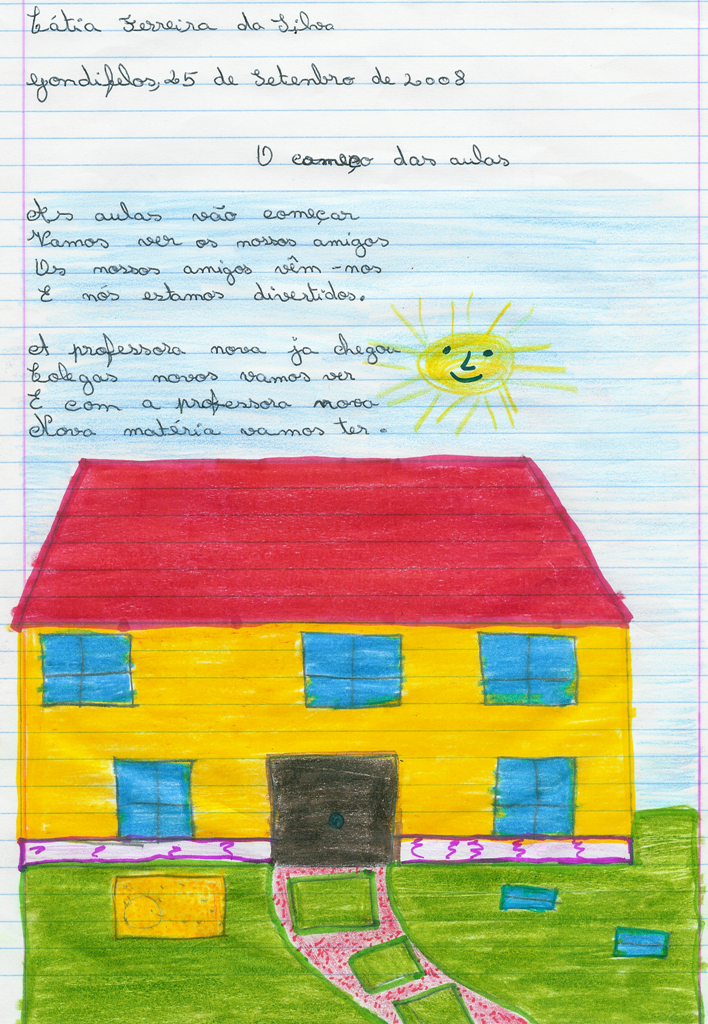 Cátia Ferreira da Silva
Gondifelos, 25 de Setenbro de 2008
O começo das aulas
As aulas vão começar
Vamos ver os nossos amigos
Os nossos amigos vêm-nos
E nós estamos divertidos.
A professora nova ja chegou
Colegas novos vamos ver
E com a professora nova
Nova matéria vamos ter.